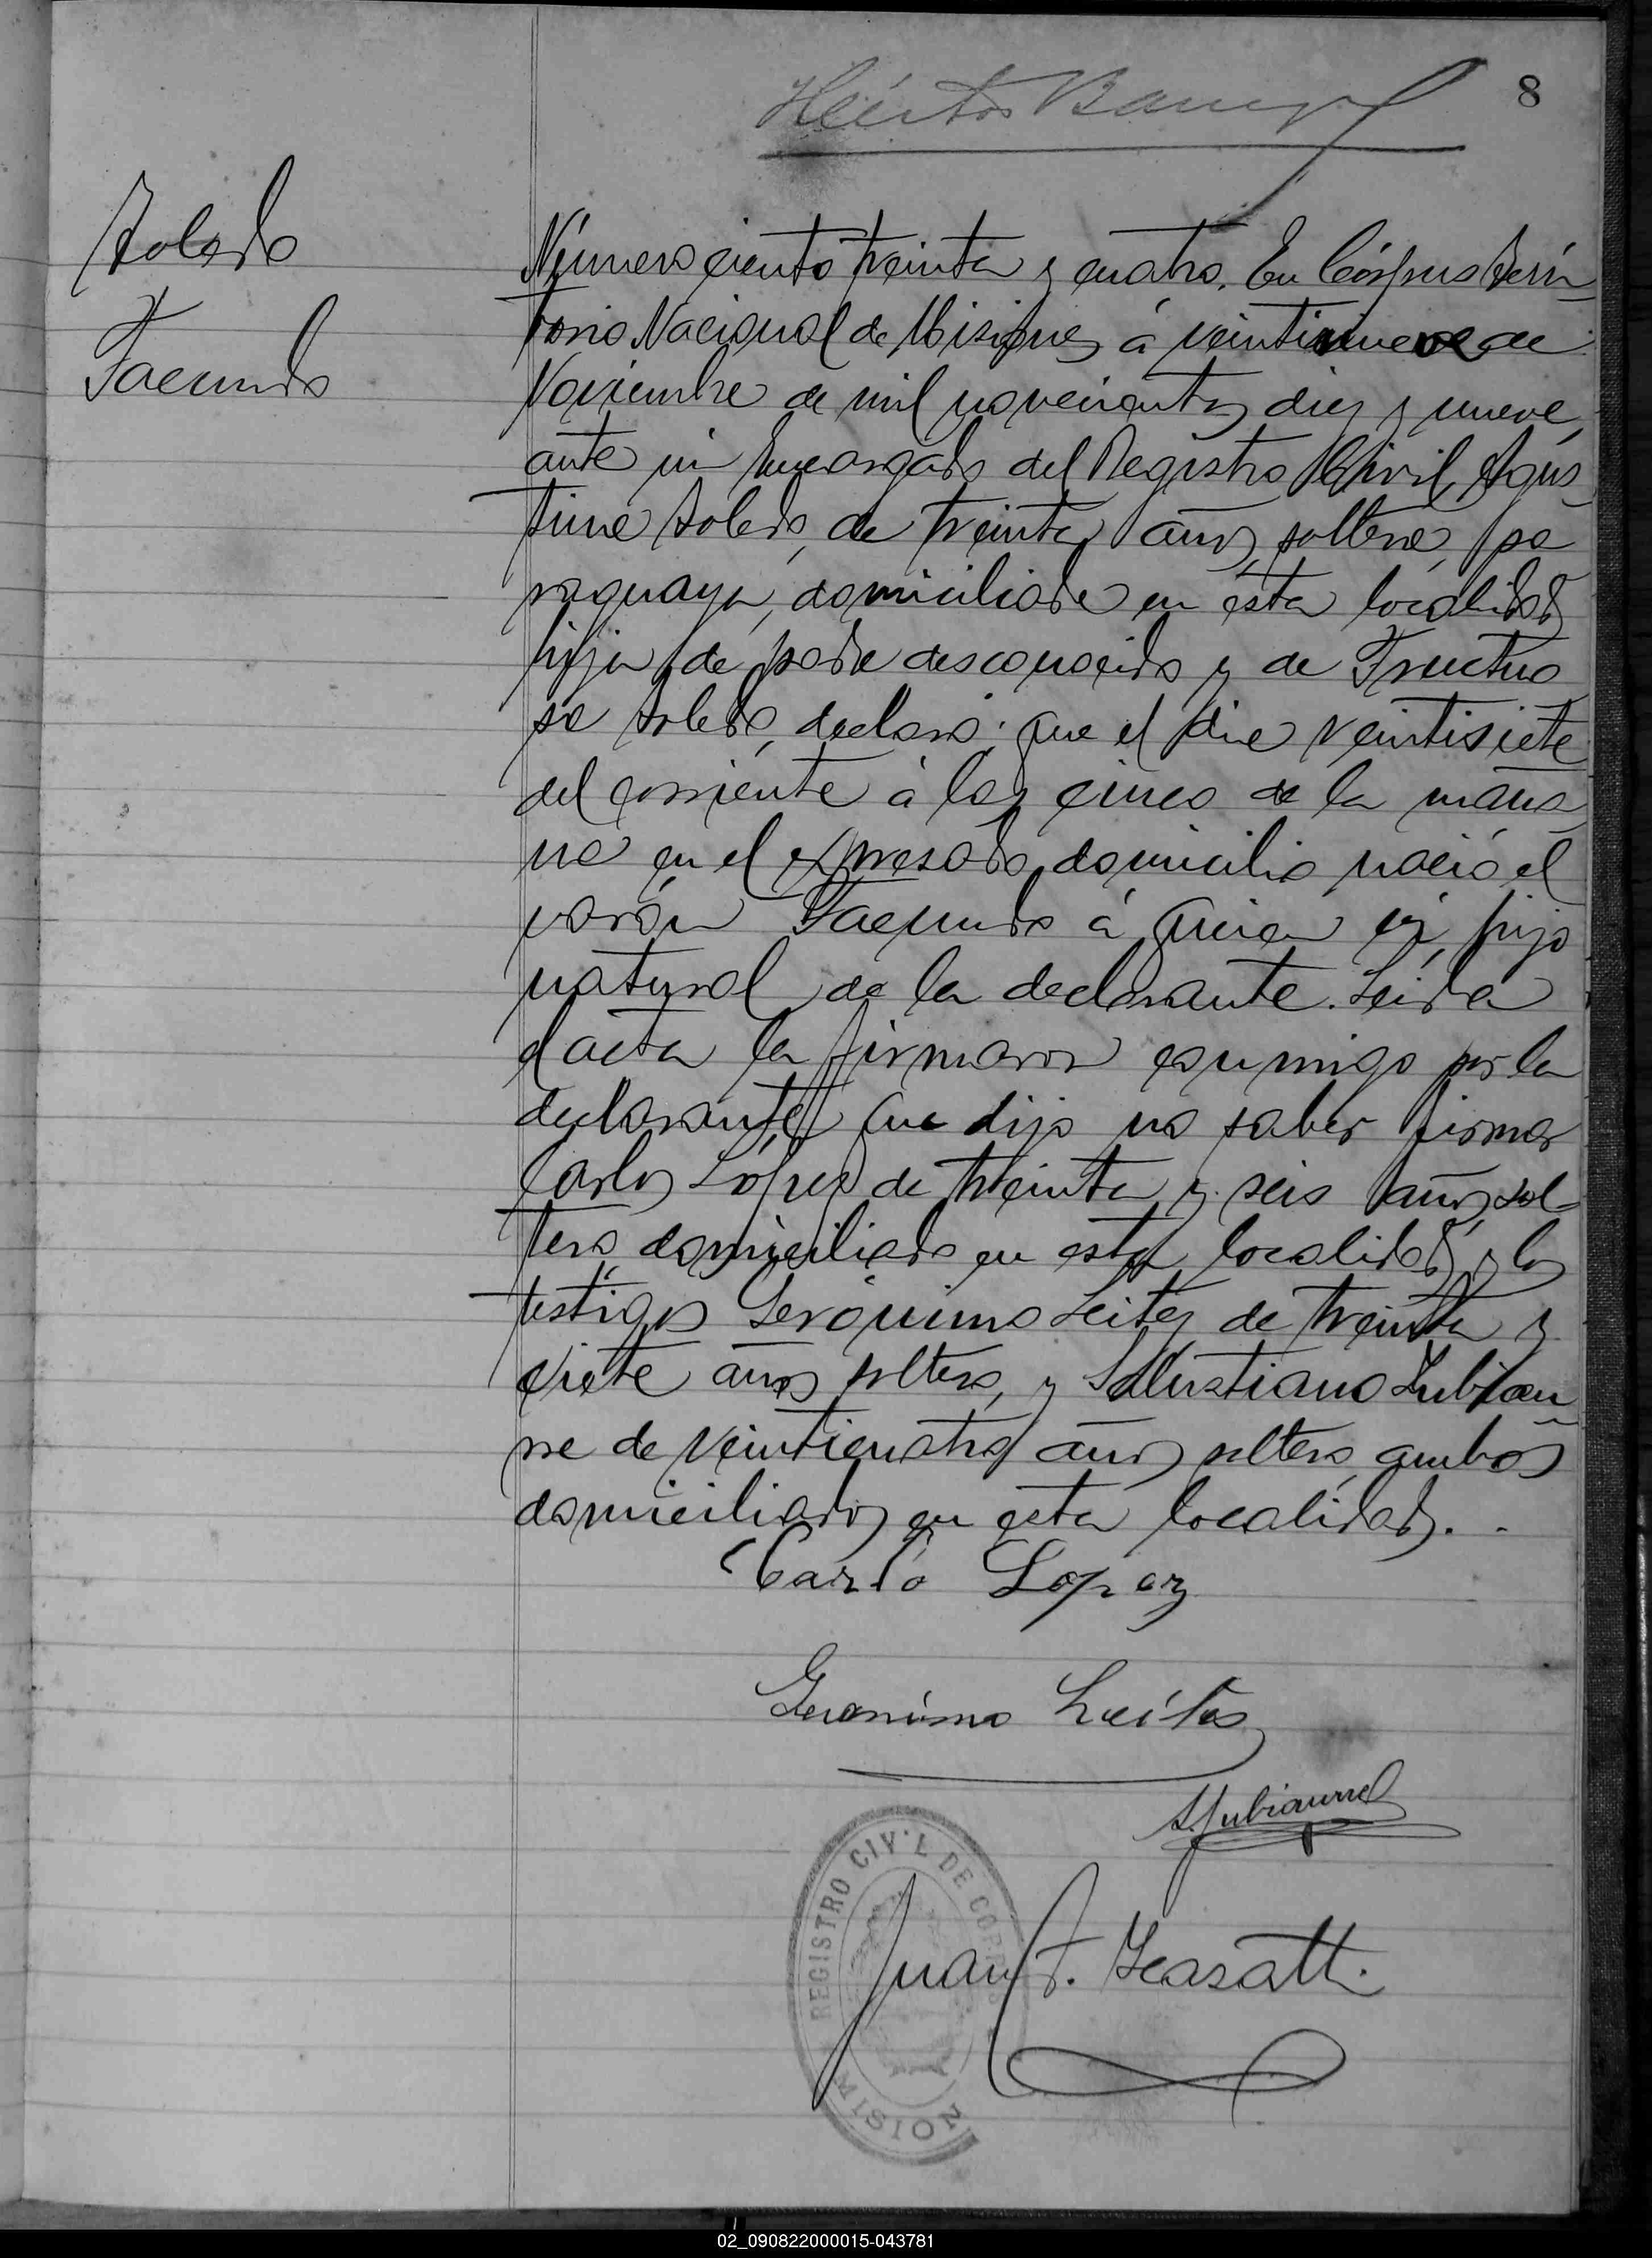 8
Toledo
Facundo
Número ciento treinta y cuatro. En Córpus Terri-
torio Nacional de Misiones á veintinueve de
Noviembre de mil novecientos diez y nueve,
ante mi Encargado del Registro Civil, Agus-
tina Toledo, de treinta años, soltera, pa
raguaya, domiciliada en esta localidad
hija de padre desconocido y de Fructuo
sa Toledo, declaró: que el dia veintisiete
del corriente á las cinco de la maña
na en el expresado domicilio nació el
varón Facundo á quien vi, hijo
natural de la declarante. Leida
el acta la firmaron conmigo por la
declarante que dijo no saber firmar
Carlos López de treinta y seis años, sol-
tero, domiciliado en esta localidad, y los
testigos Gerónimo Leites de treinta y
siete años soltero, y Sallustiano Zubiau
rre de veinticuatro años soltero, ambos
domiciliados en esta localidad. -
Carlo Lopez
Geronimo Leites
S. Zubiaurre
Juan
REGISTRO CIVIL DE CORPUS
MISION
02_090822000015-043781